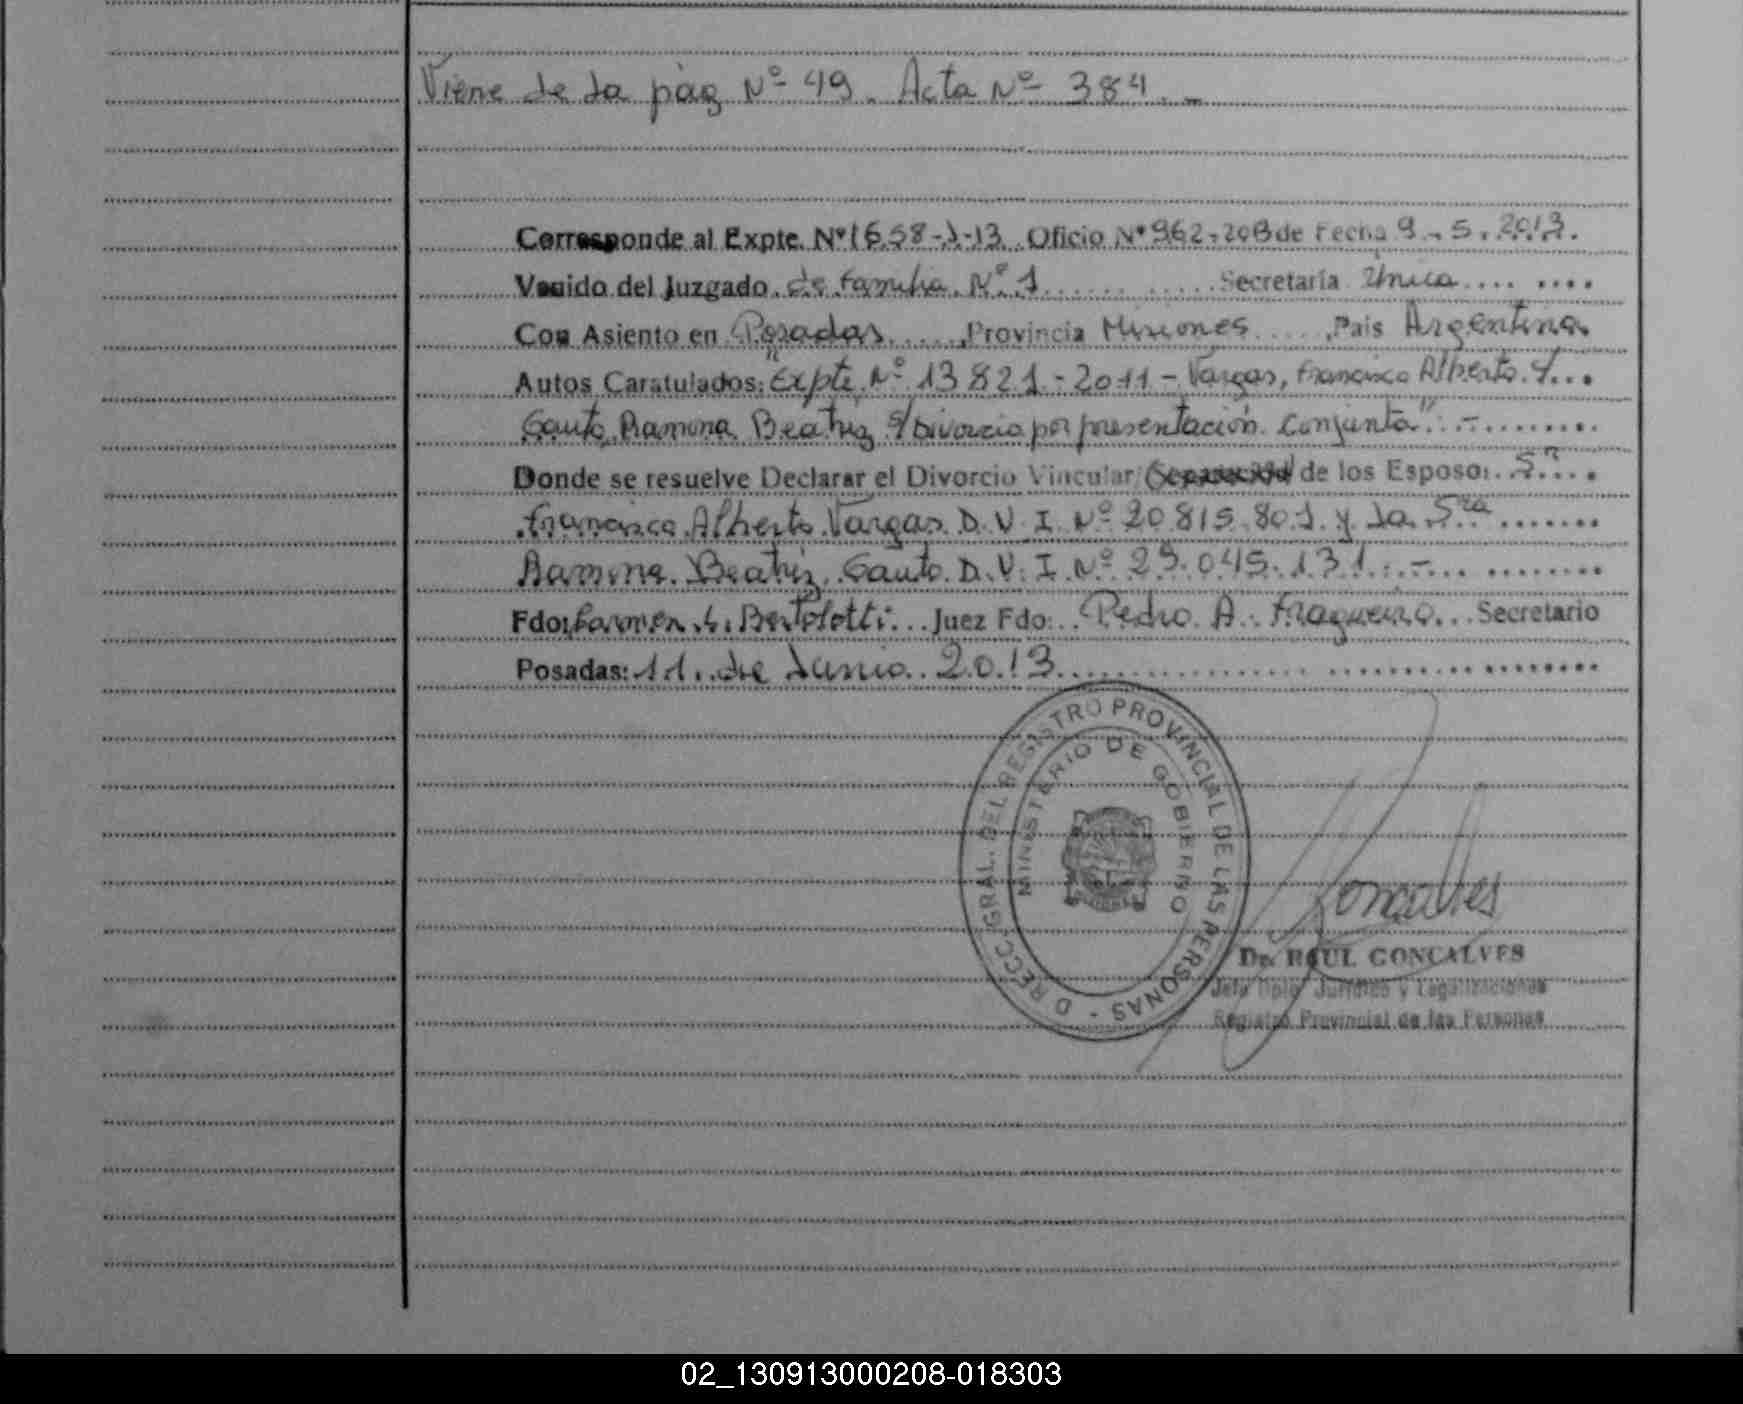 Viene de la pág Nº 49. Acta Nº 384.-
Corresponde al Expte. Nº 1658-J-13. Oficio Nº 962-2013 de Fecha 9.-5.2013.
Venido del Juzgado de familia Nº 1 Secretaría Única
Con Asiento en Posadas, Provincia Misiones, País Argentina
Autos Caratulados: "Expte. Nº 13821-2011 - Vargas, Francisco Alberto y
Gauto, Ramona Beatriz s/Divorcio por presentación Conjunta".-
Donde se resuelve Declarar el Divorcio Vincular de los Esposos: Sr.
Francisco Alberto Vargas D.N.I. Nº 20.815.801 y la Sra
Ramona Beatriz Gauto D.N.I. Nº 29.045.131.-
Fdo: Carmen L. Bertolotti Juez Fdo: Pedro A. Fragueiro Secretario
Posadas: 11 de Junio 2013
DIRECC. GRAL. DEL REGISTRO PROVINCIAL DE LAS PERSONAS -
MINISTERIO DE GOBIERNO
Goncalves
Dr. RAUL GONCALVES
Jefe Dpto. Jurídico y Legalizaciones
Registro Provincial de las Personas
02_130913000208-018303